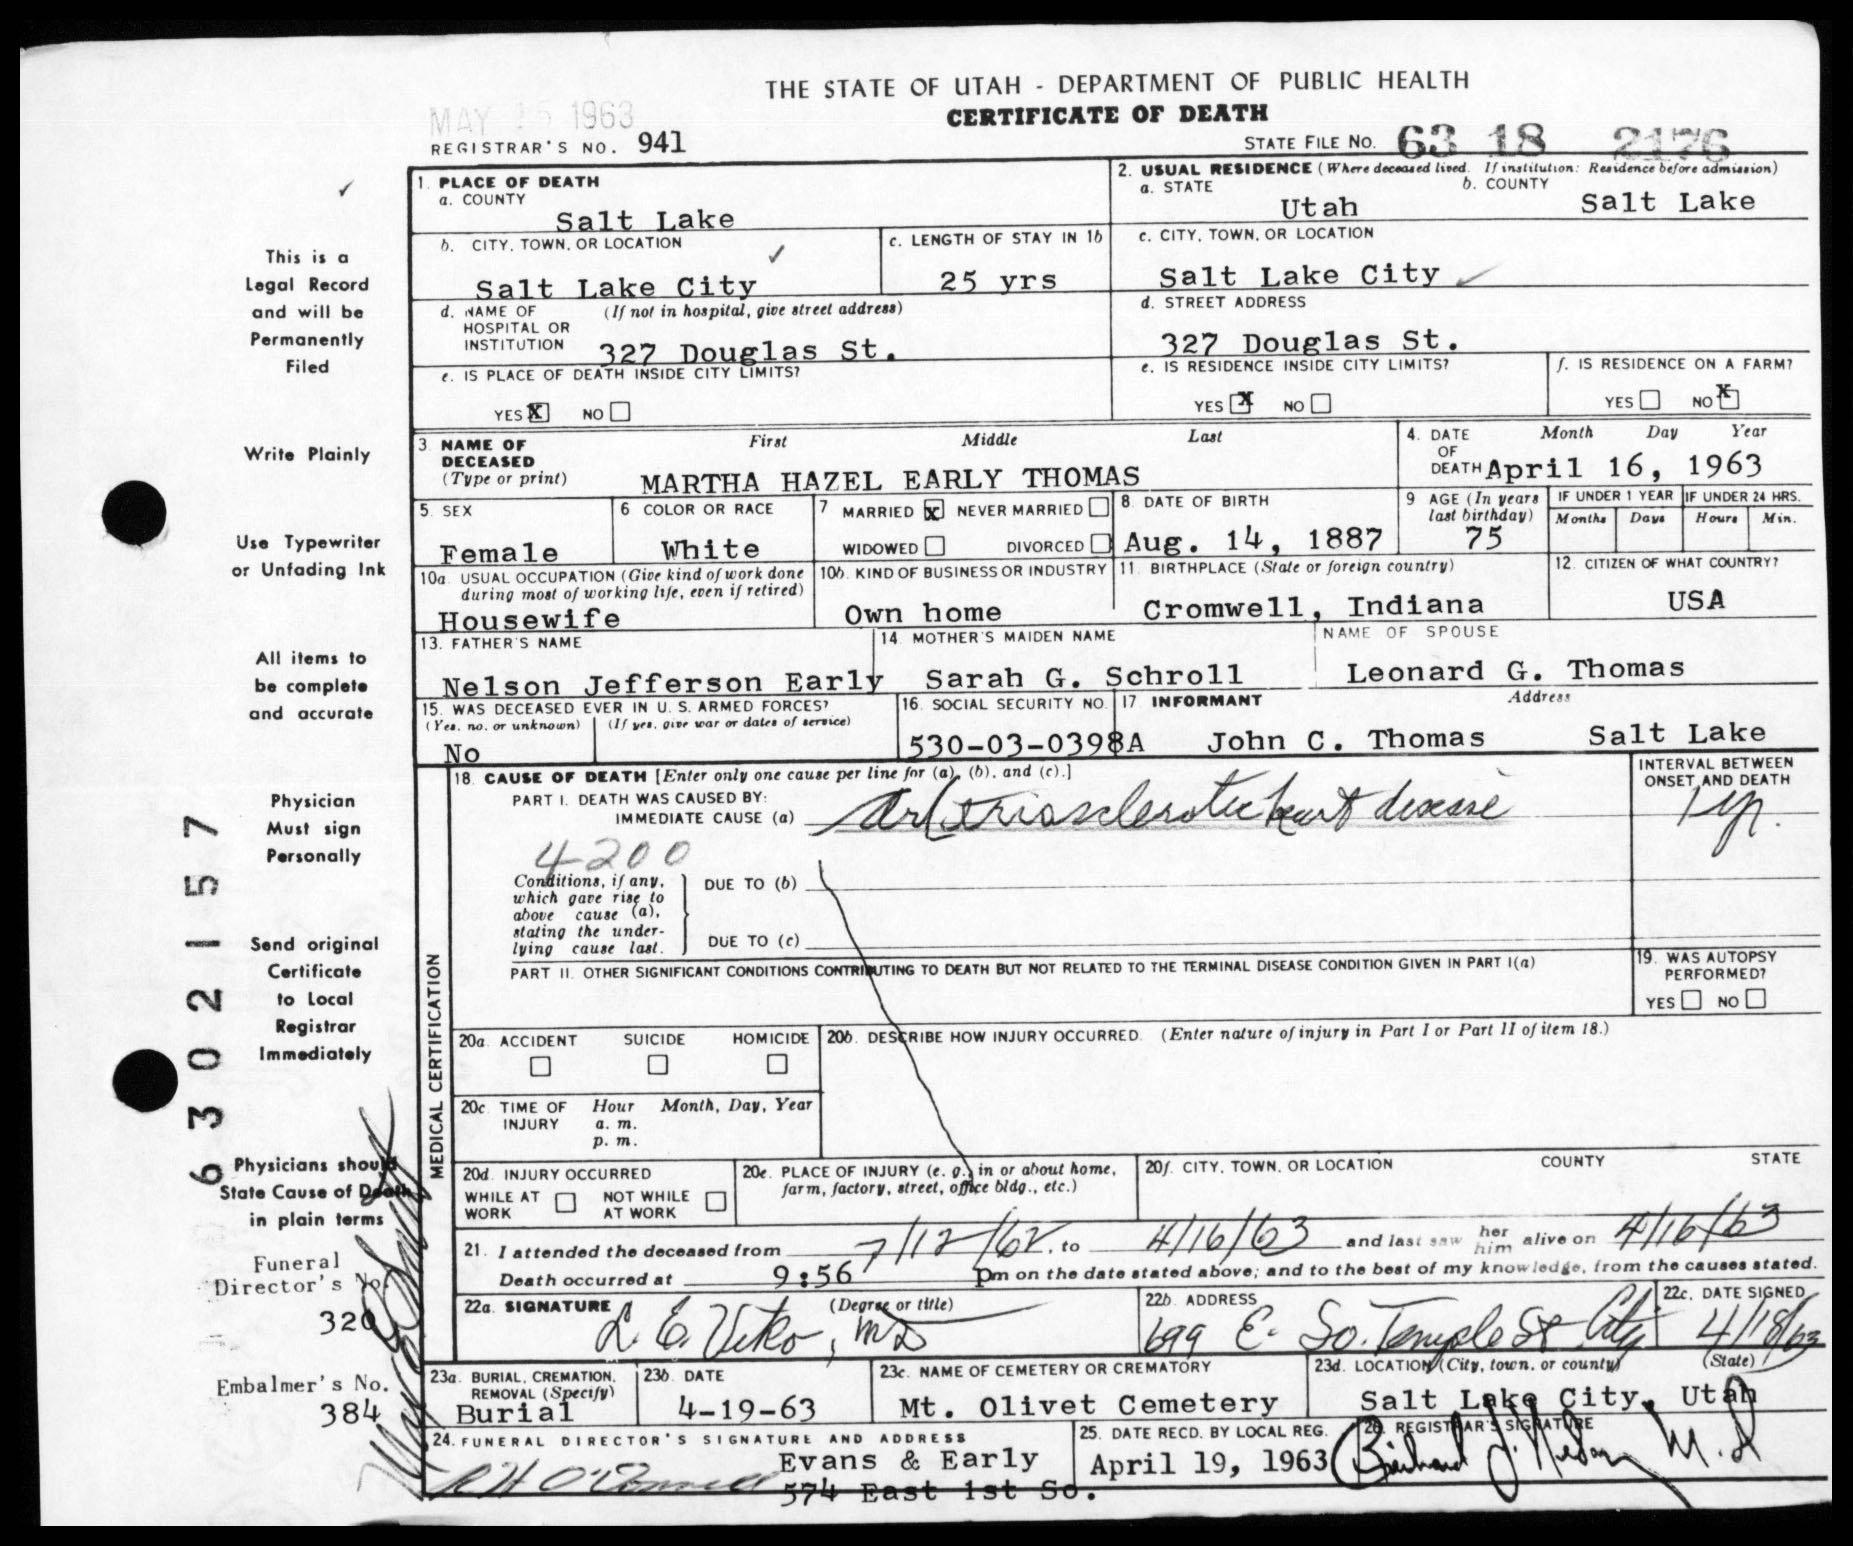 THE STATE OF UTAH - DEPARTMENT OF PUBLIC HEALTH
CERTIFICATE OF DEATH
MAY 15 1963
REGISTRAR'S NO. 941
STATE FILE NO. 63 18 2176
1. PLACE OF DEATH
a. COUNTY
Salt Lake
2. USUAL RESIDENCE (Where deceased lived. If institution: Residence before admission)
a. STATE
Utah
b. COUNTY
Salt Lake
b. CITY, TOWN, OR LOCATION
Salt Lake City
c. LENGTH OF STAY IN 1b
25 yrs
c. CITY, TOWN, OR LOCATION
Salt Lake City
d. NAME OF HOSPITAL OR INSTITUTION (If not in hospital, give street address)
327 Douglas St.
d. STREET ADDRESS
327 Douglas St.
e. IS PLACE OF DEATH INSIDE CITY LIMITS?
YES X NO
e. IS RESIDENCE INSIDE CITY LIMITS?
YES X NO
f. IS RESIDENCE ON A FARM?
YES NO X
3. NAME OF DECEASED (Type or print)
First Middle Last
MARTHA HAZEL EARLY THOMAS
4. DATE OF DEATH
Month Day Year
April 16, 1963
5. SEX
Female
6 COLOR OR RACE
White
7 MARRIED X NEVER MARRIED
WIDOWED DIVORCED
8 DATE OF BIRTH
Aug. 14, 1887
9 AGE (In years last birthday)
75
IF UNDER 1 YEAR
Months Days
IF UNDER 24 HRS.
Hours Min.
10a. USUAL OCCUPATION (Give kind of work done during most of working life, even if retired)
Housewife
10b. KIND OF BUSINESS OR INDUSTRY
Own home
11. BIRTHPLACE (State or foreign country)
Cromwell, Indiana
12. CITIZEN OF WHAT COUNTRY?
USA
13. FATHER'S NAME
Nelson Jefferson Early
14. MOTHER'S MAIDEN NAME
Sarah G. Schroll
NAME OF SPOUSE
Leonard G. Thomas
15. WAS DECEASED EVER IN U.S. ARMED FORCES?
(Yes, no, or unknown) (If yes, give war or dates of service)
No
16. SOCIAL SECURITY NO.
530-03-0398A
17 INFORMANT Address
John C. Thomas Salt Lake
MEDICAL CERTIFICATION
18. CAUSE OF DEATH [Enter only one cause per line for (a), (b), and (c).]
PART I. DEATH WAS CAUSED BY:
IMMEDIATE CAUSE (a) Arteriosclerotic heart disease
INTERVAL BETWEEN ONSET AND DEATH
1 yr.
4200
Conditions, if any, which gave rise to above cause (a), stating the under-lying cause last.
DUE TO (b)
DUE TO (c)
PART II. OTHER SIGNIFICANT CONDITIONS CONTRIBUTING TO DEATH BUT NOT RELATED TO THE TERMINAL DISEASE CONDITION GIVEN IN PART I(a)
19. WAS AUTOPSY PERFORMED?
YES NO
20a. ACCIDENT SUICIDE HOMICIDE
20b. DESCRIBE HOW INJURY OCCURRED. (Enter nature of injury in Part I or Part II of item 18.)
20c. TIME OF INJURY
Hour Month, Day, Year
a. m.
p. m.
20d. INJURY OCCURRED
WHILE AT WORK NOT WHILE AT WORK
20e. PLACE OF INJURY (e. g., in or about home, farm, factory, street, office bldg., etc.)
20f. CITY, TOWN, OR LOCATION COUNTY STATE
21. I attended the deceased from 7/12/62, to 4/16/63 and last saw her him alive on 4/16/63
Death occurred at 9:56 pm on the date stated above; and to the best of my knowledge, from the causes stated.
22a. SIGNATURE (Degree or title)
L. E. Viko, MD
22b. ADDRESS
699 E. So. Temple St City
22c. DATE SIGNED
4/18/63
23a. BURIAL, CREMATION, REMOVAL (Specify)
Burial
23b. DATE
4-19-63
23c. NAME OF CEMETERY OR CREMATORY
Mt. Olivet Cemetery
23d. LOCATION (City, town, or county) (State)
Salt Lake City, Utah
24. FUNERAL DIRECTOR'S SIGNATURE AND ADDRESS
R H O'Connell
Evans & Early
574 East 1st So.
25. DATE RECD. BY LOCAL REG.
April 19, 1963
26. REGISTRAR'S SIGNATURE
M.D
This is a
Legal Record
and will be
Permanently
Filed
Write Plainly
Use Typewriter
or Unfading Ink
All items to
be complete
and accurate
Physician
Must sign
Personally
Send original
Certificate
to Local
Registrar
Immediately
Physicians should
State Cause of Death
in plain terms
Funeral
Director's No.
320
Embalmer's No.
384
6302157